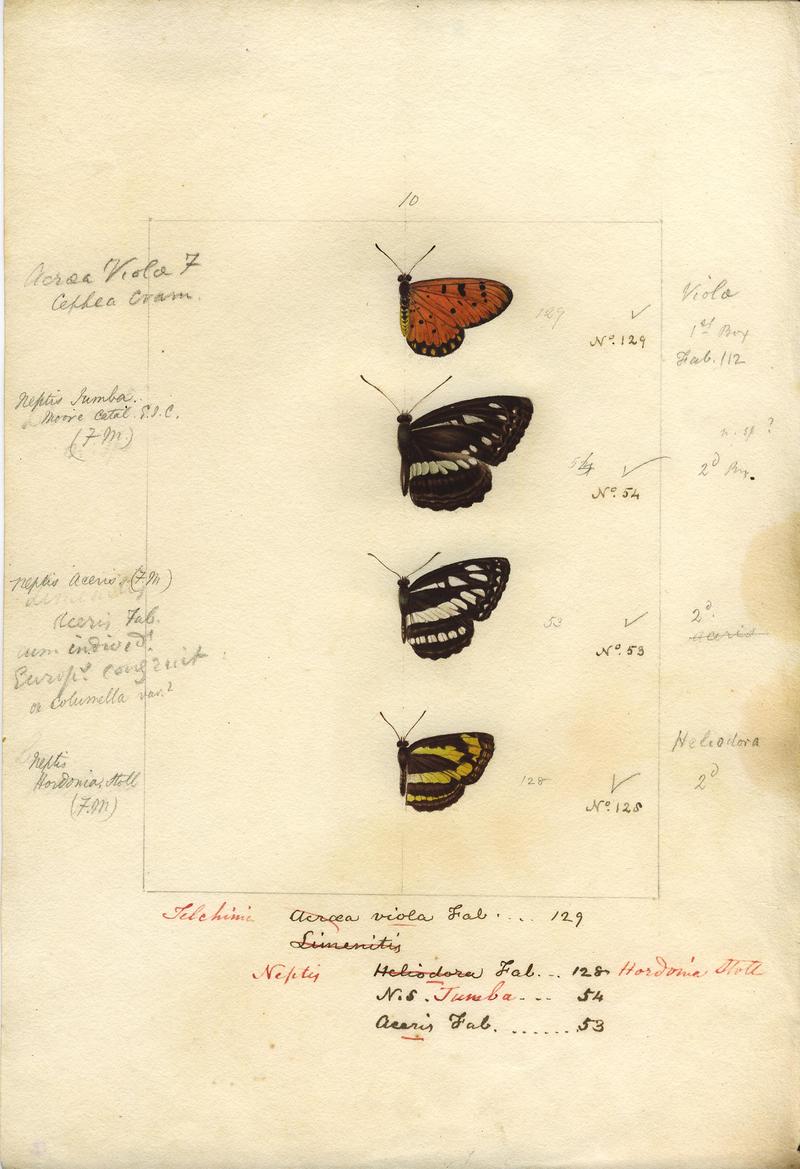 10
Acræa Violæ F
Cephea Cram.
129
✓
Nº. 129
Violæ
1st Box
Fab. 112
Neptis Jumba.
Moore Catal. E.I.C.
(F.M.)
54
✓
Nº. 54
n. sp ?
2d Box.
Neptis Aceris (F.M)
Aceris Fab.
cum individ.
Europ. congruit
or Columella var?
53
✓
Nº. 53
2d.
aceris
Neptis
Hordonia, Stoll
(F.M)
128
✓
Nº. 128
Heliodora
2d
Telchinia Acræa viola Fab. ... 129
Limenitis
Neptis Heliodora Fab. .. 128 Hordonia Stoll
N.S. Jumba - - - 54
Aceris Fab. ....... 53